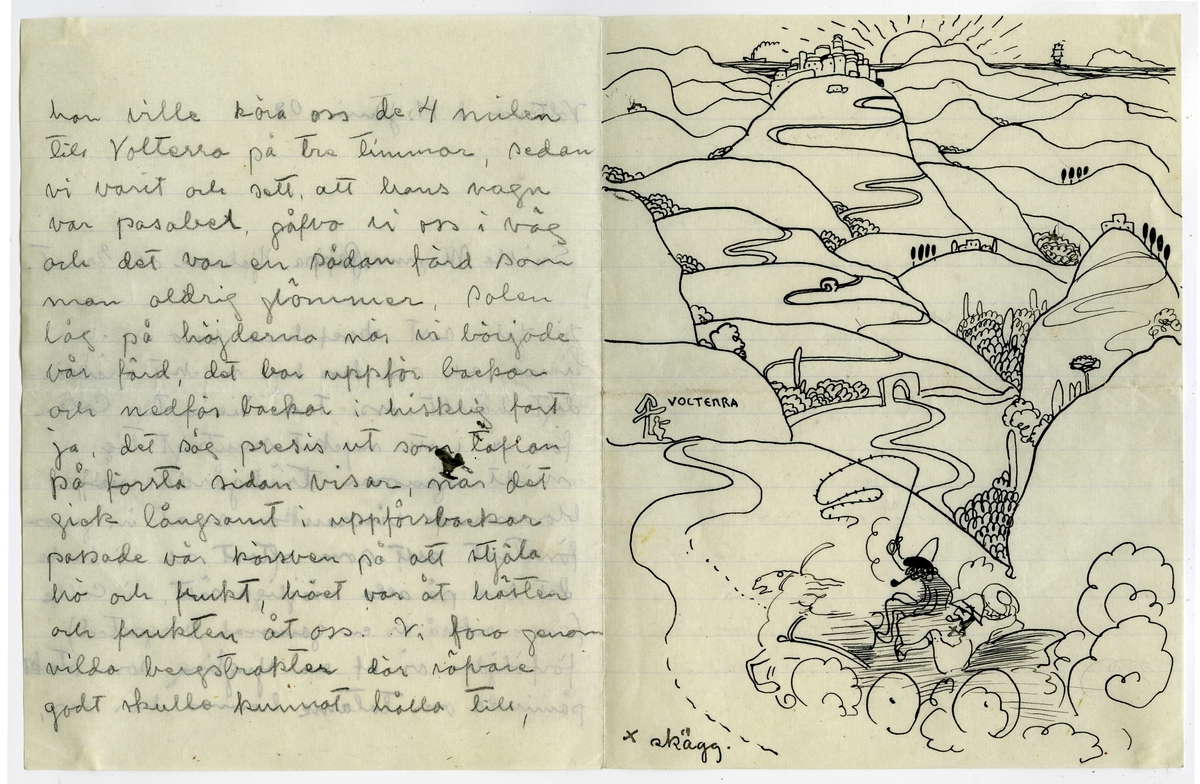 han ville köra oss de 4 milen
till Volterra på tre timmar, sedan
vi varit och sett, att hans vagn
var pasabel, gåfvo vi oss i väg
och det var en sådan färd som
man aldrig glömmer, solen
låg på höjderna när vi började
vår färd, det bar uppför backar
och nedför backar i hisklig fart
ja, det såg presis ut som taflan
på första sidan visar, när det
gick långsamt i uppförsbackar
pasade vår körsven på att stjäla
hö och frukt, höet var åt hästen
och frukten åt oss. Vi foro genom
vilda bergstrakter där röfvare
godt skulle kunnat hålla till,
VOLTERRA
x skägg.